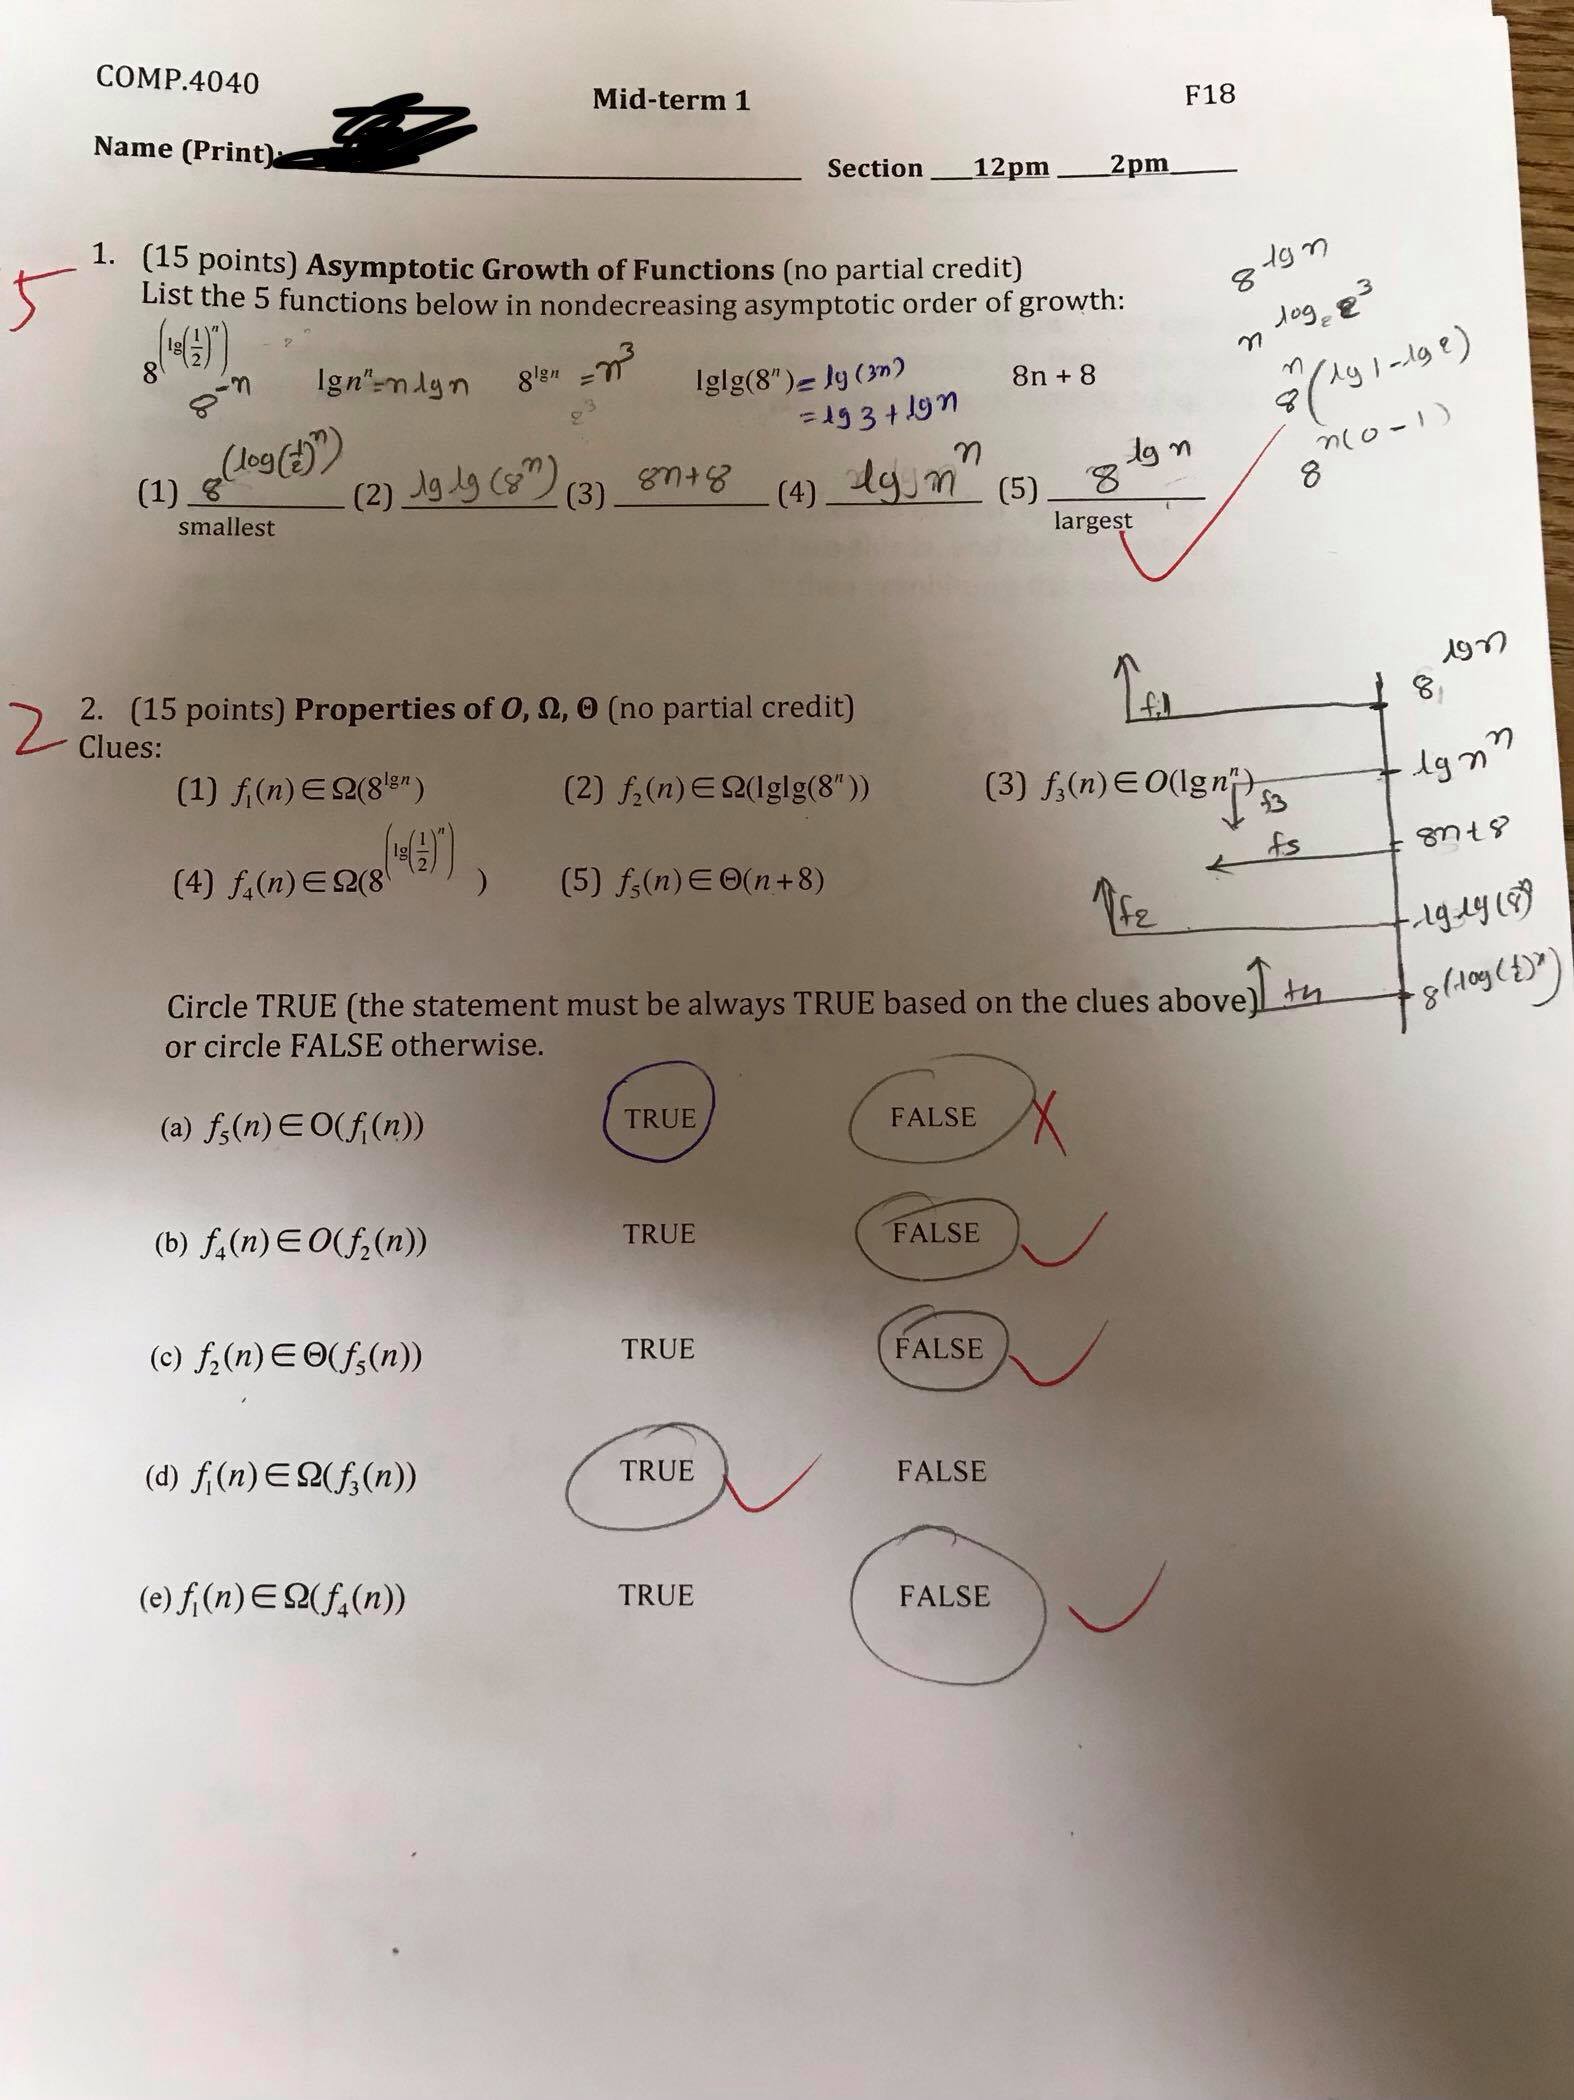 COMP.4040
Mid-term 1
F18
Name (Print):
Section ___12pm ____2pm_____
5
1. (15 points) Asymptotic Growth of Functions (no partial credit)
List the 5 functions below in nondecreasing asymptotic order of growth:
8^(lg(1/2)^n) lgn^n=n lgn 8^lgn =n^3 lglg(8^n)= lg(3n) 8n + 8
8^-n
= lg3 + lgn
8^lgn
n^log₂2^3
8^n(lg1-lg2)
8^n(0-1)
(1) 8^(log(1/2)^n) (2) lg lg (8^n) (3) 8n+8 (4) lg n^n (5) 8^lg n
smallest
largest
2
2. (15 points) Properties of O, Ω, Θ (no partial credit)
Clues:
(1) f₁(n)∈Ω(8^lgn) (2) f₂(n)∈Ω(lglg(8^n)) (3) f₃(n)∈O(lgn^n)
(4) f₄(n)∈Ω(8^(lg(1/2)^n)) (5) f₅(n)∈Θ(n+8)
f1 8^lgn
f3 lg n^n
f5 8n+8
f2 lg lg (8^n)
f4 8^(log(1/2)^n)
Circle TRUE (the statement must be always TRUE based on the clues above)
or circle FALSE otherwise.
(a) f₅(n)∈O(f₁(n)) TRUE FALSE X
(b) f₄(n)∈O(f₂(n)) TRUE FALSE
(c) f₂(n)∈Θ(f₅(n)) TRUE FALSE
(d) f₁(n)∈Ω(f₃(n)) TRUE FALSE
(e) f₁(n)∈Ω(f₄(n)) TRUE FALSE